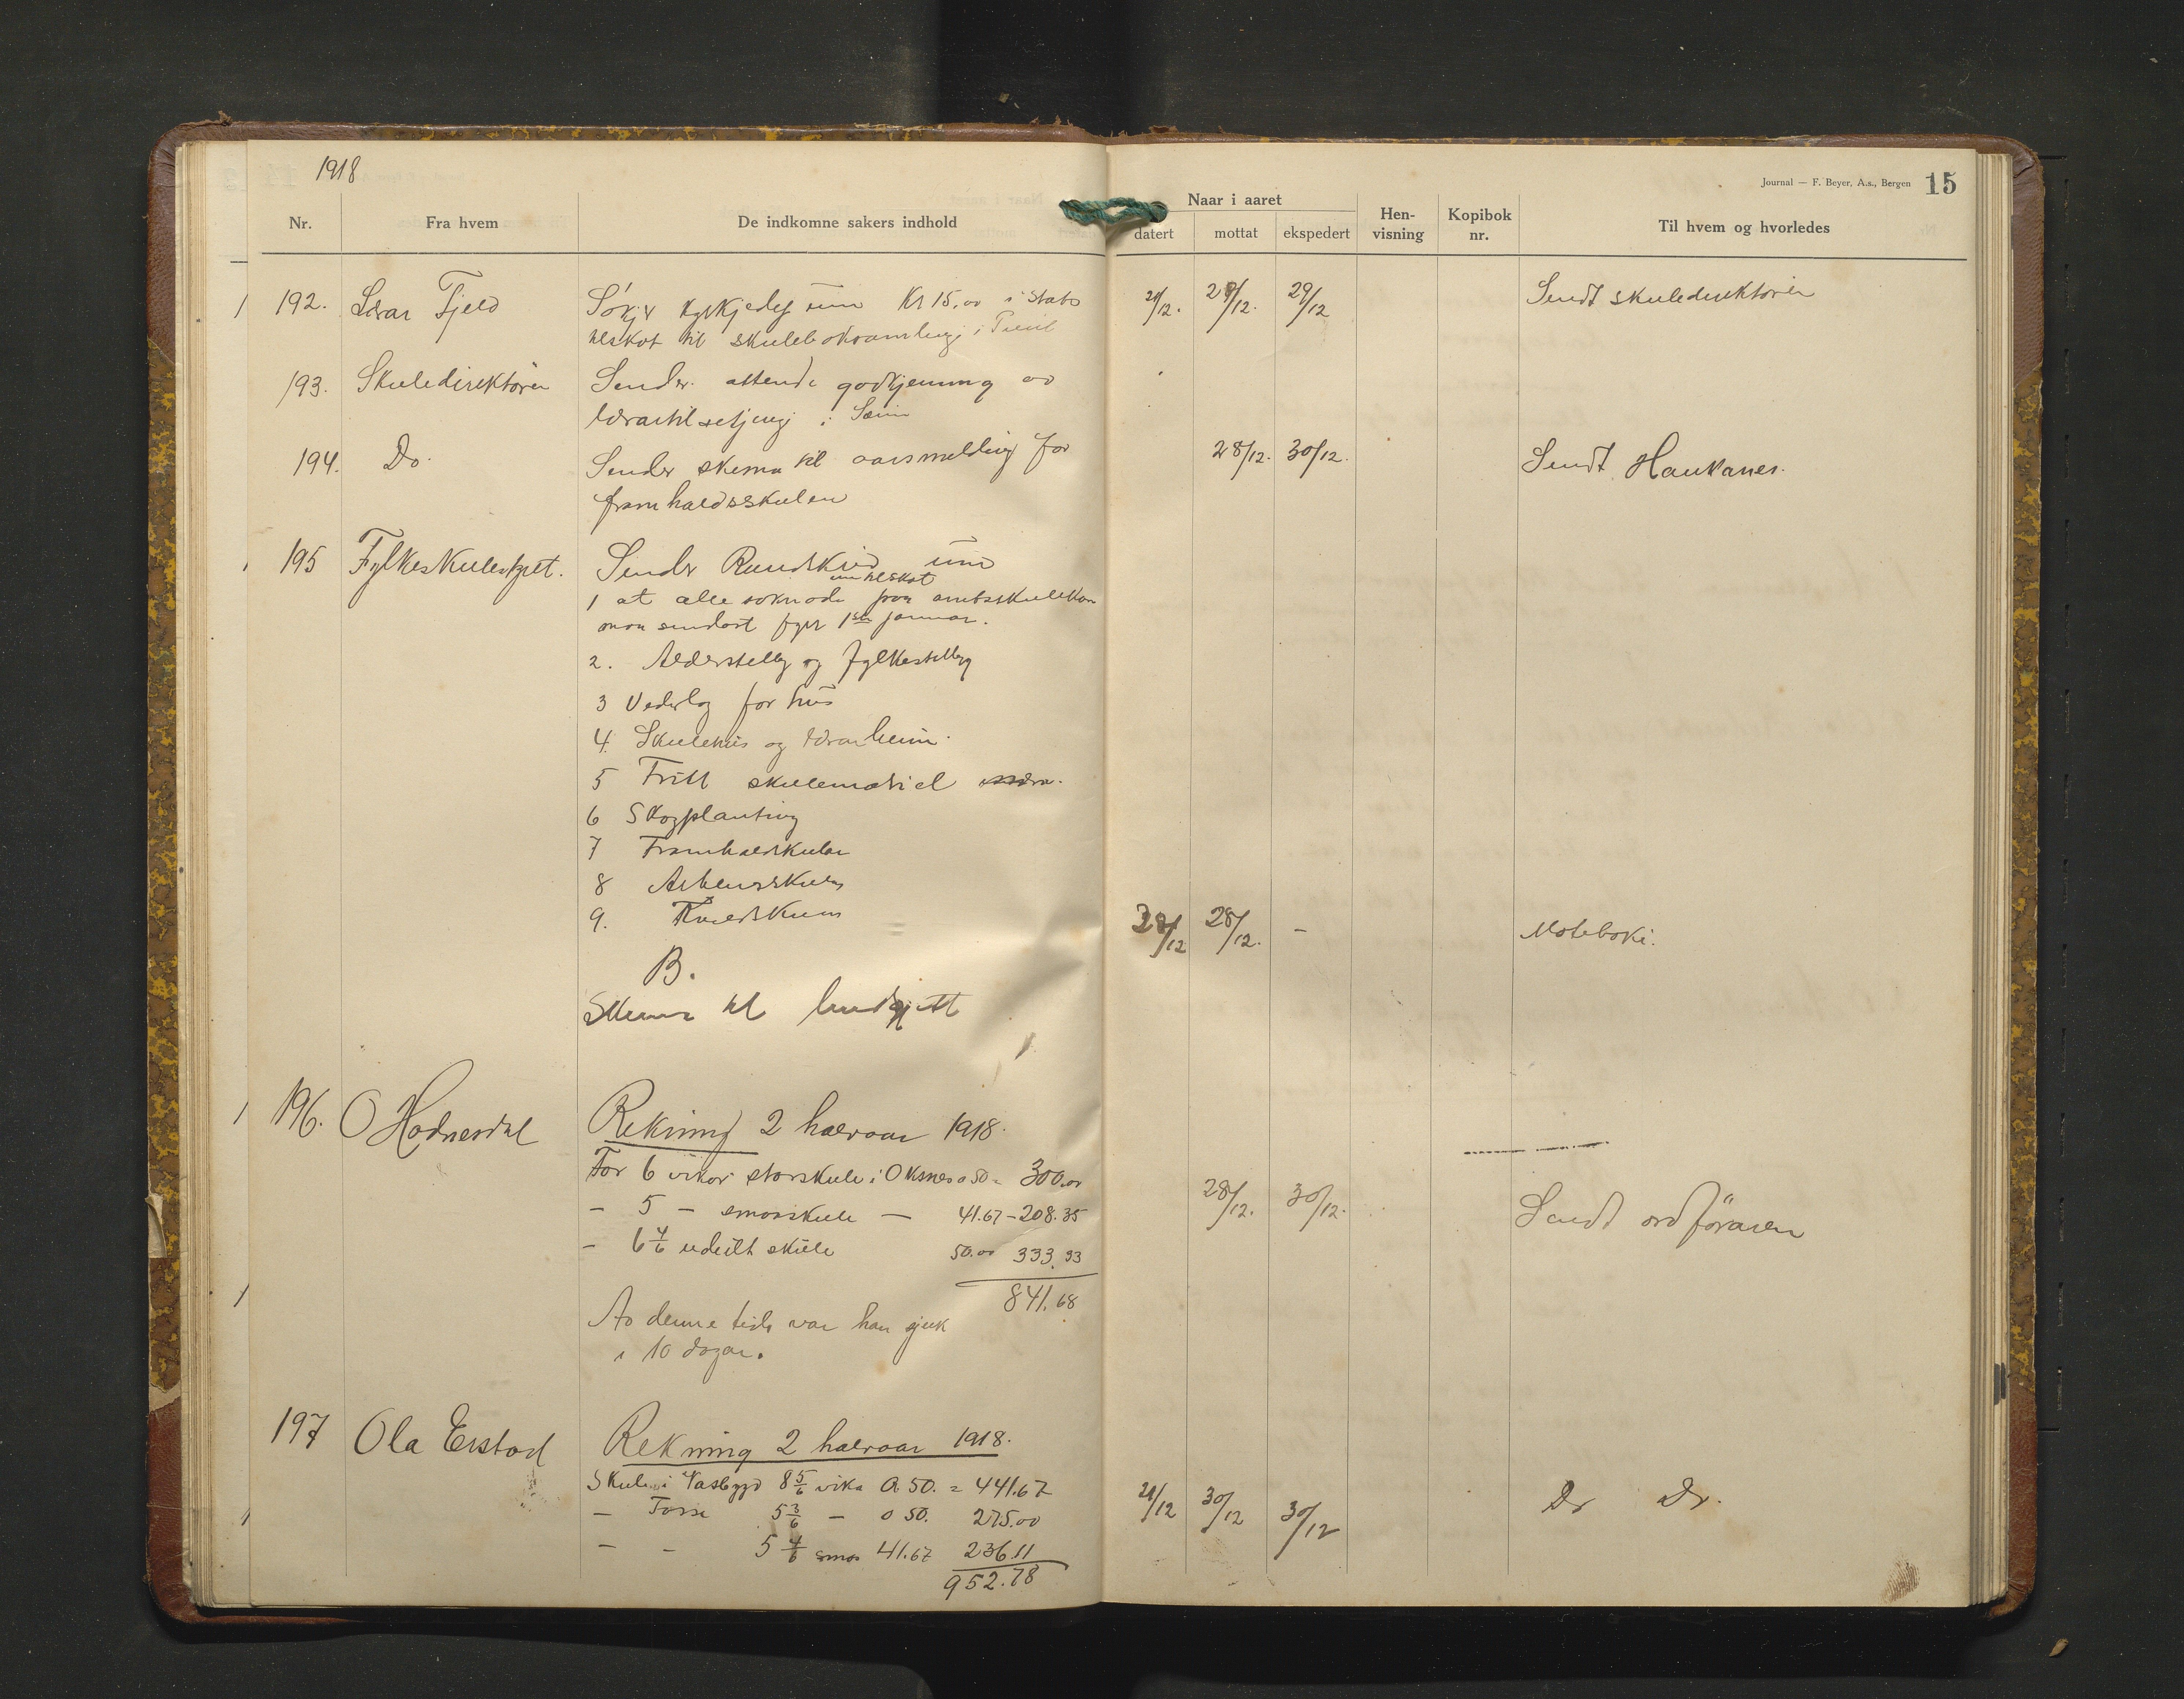 1918
Journal — F. Beyer, A.s., Bergen 15
Nr. Fra hvem De indkomne sakers indhold Naar i aaret datert mottat ekspedert Hen-visning Kopibok nr. Til hvem og hvorledes
192. Lærar Fjeld Søkjer um Kr 15,00 i stats 21/12. 29/12 Sendt skuledirektøren
tilskot til skuleboksamling i
193. Skuledirektøren Sender attende godkjenning av
lærartilsetjing i
194. Do. Sender skema til aarsmelding for 28/12. 30/12. Sendt Haukanes.
framhaldsskulen
195 Fylkesskulestyret. Sender Rundskriv um
um tilskot
1 at alle søknader fraa amtsskulekas
maa sendast fyr 1ste januar.
2. Alderstillegg og fylkestillegg
3 Vederlag for hus
4. Skulehus og lærarheim.
5 Fritt skulemateriel
6 Skogplanting
7 Framhaldskular
8 Arbeidsskular
9. Kveldskular 28/12 28/12. - Møteboki.
B.
Skema til budgjett
196. O Hodnesdal Rekning 2 halvaar 1918.
For 6 vikor storskule i Oksnes a 50 = 300.00
- 5 - smaaskule - 41.67 - 208.35 28/12. 30/12. Sendt ordføraren
- 6 4/6 udeilt skule 50.00 333.33
841.68
Av denne tidi var han sjuk
i 10 dagar.
197 Ola Eistad Rekning 2 halvaar 1918.
Skule i Vasbygd 8 5/6 vika a 50. = 441.67 21/12 30/12 30/12 Do Do.
- Fosse 5 3/6 - a 50. 275.00
- - 5 4/6 smaa 41.67 236.11
952.78